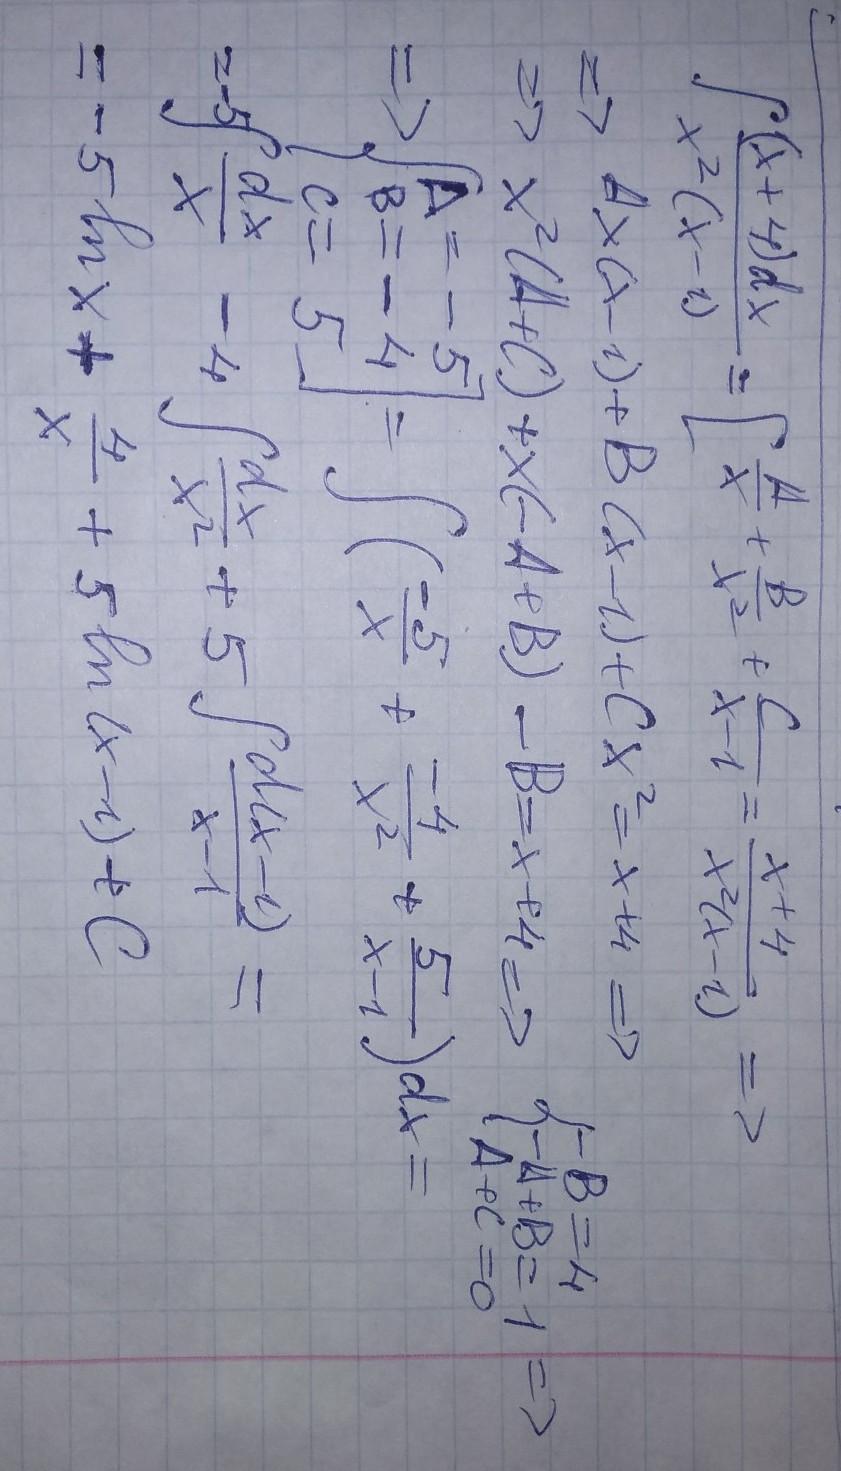 ∫ (x+4)dx / x²(x-1) = [ A/x + B/x² + C/x-1 = x+4 / x²(x-1) =>
=> Ax(x-1) + B(x-1) + Cx² = x+4 =>
=> x²(A+C) + x(-A+B) - B = x+4 => { -B=4 -A+B=1 A+C=0 =>
=> { A=-5 B=-4 C=5 ] = ∫ ( -5/x + -4/x² + 5/x-1 ) dx =
= -5 ∫ dx/x - 4 ∫ dx/x² + 5 ∫ d(x-1)/x-1 =
= -5 ln x + 4/x + 5 ln (x-1) + C